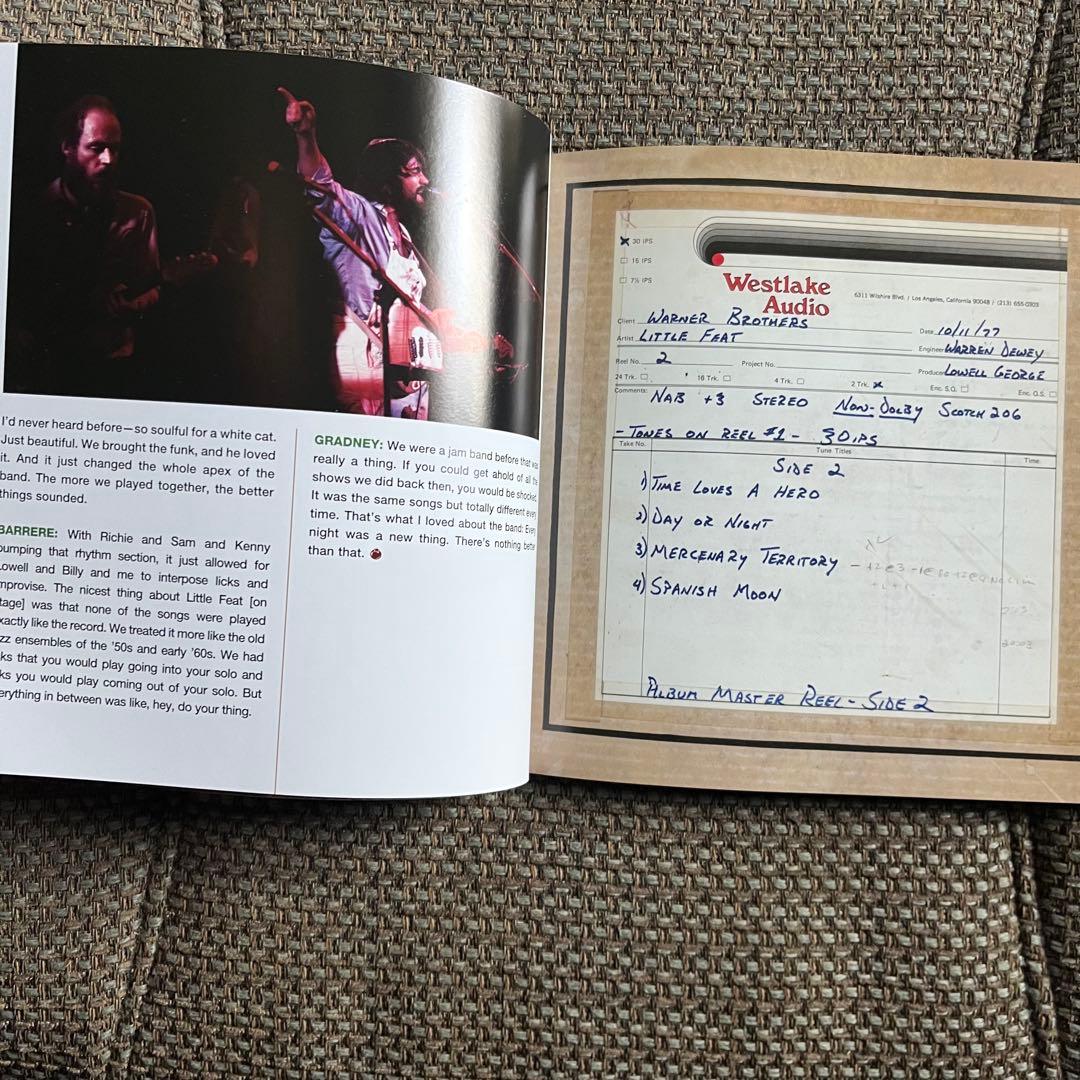 I'd never heard before—so soulful for a white cat.
Just beautiful. We brought the funk, and he loved
it. And it just changed the whole apex of the
band. The more we played together, the better
things sounded.
BARRERE: With Richie and Sam and Kenny
pumping that rhythm section, it just allowed for
Lowell and Billy and me to interpose licks and
improvise. The nicest thing about Little Feat [on
stage] was that none of the songs were played
exactly like the record. We treated it more like the old
zz ensembles of the '50s and early '60s. We had
ks that you would play going into your solo and
ks you would play coming out of your solo. But
erything in between was like, hey, do your thing.
GRADNEY: We were a jam band before that was
really a thing. If you could get ahold of all the
shows we did back then, you would be shocked.
It was the same songs but totally different every
time. That's what I loved about the band: Every
night was a new thing. There's nothing better
than that.
30 IPS
15 IPS
7½ IPS
Westlake
Audio
6311 Wilshire Blvd. / Los Angeles, California 90048 / (213) 655-0303
Client WARNER BROTHERS
Date 10/11/77
Artist LITTLE FEAT
Engineer WARREN DEWEY
Reel No. 2
Project No.
Producer LOWELL GEORGE
24 Trk.
16 Trk.
4 Trk.
2 Trk.
Enc. S.Q.
Enc. Q.S.
Comments: NAB +3 STEREO NON-DOLBY SCOTCH 206
- TONES ON REEL #1 - 30 IPS
Take No.
Tune Titles
Time
SIDE 2
1) TIME LOVES A HERO
2) DAY OR NIGHT
3) MERCENARY TERRITORY
4) SPANISH MOON
ALBUM MASTER REEL - SIDE 2